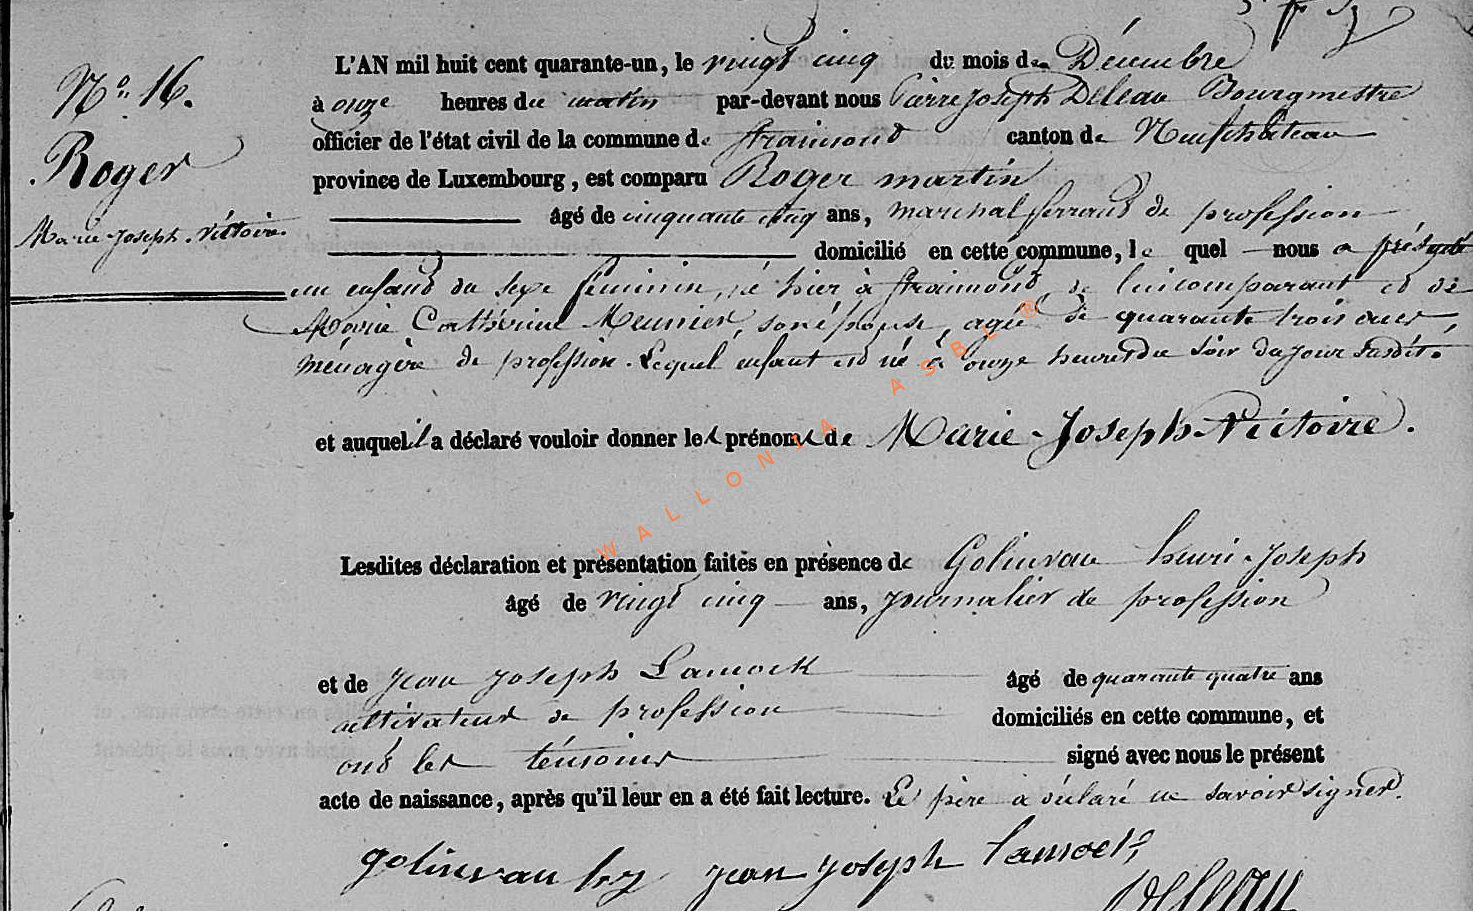 N° 16.
Roger
Marie-Joseph-Victoire.
L'AN mil huit cent quarante-un, le vingt cinq du mois de Décembre
à onze heures du matin par-devant nous Pierre Joseph Deleau Bourgmestre
officier de l'état civil de la commune de Straimont canton de Neufchateau
province de Luxembourg, est comparu Roger martin
âgé de cinquante cinq ans, marchal ferrant de profession
domicilié en cette commune, le quel nous a présenté
un enfant du sexe feminin, né hier à Straimont, de lui comparant et de
Marie Cathérine Meunier, son épouse, agée de quarante trois ans,
ménagère de profession. Lequel enfant est né à onze heures du soir du jour susdit.
et auquel il a déclaré vouloir donner les prénoms de Marie-Joseph-Victoire.
Lesdites déclaration et présentation faites en présence de Golinvau henri-Joseph
âgé de vingt cinq ans, journalier de profession
et de Jean Joseph Lamock âgé de quarante quatre ans
cultivateur de profession domiciliés en cette commune, et
ont les témoins signé avec nous le présent
acte de naissance, après qu'il leur en a été fait lecture. Le père a déclaré ne savoir signer.
golinvau h j Jean joseph lamock
WALLONIA ASBL ®